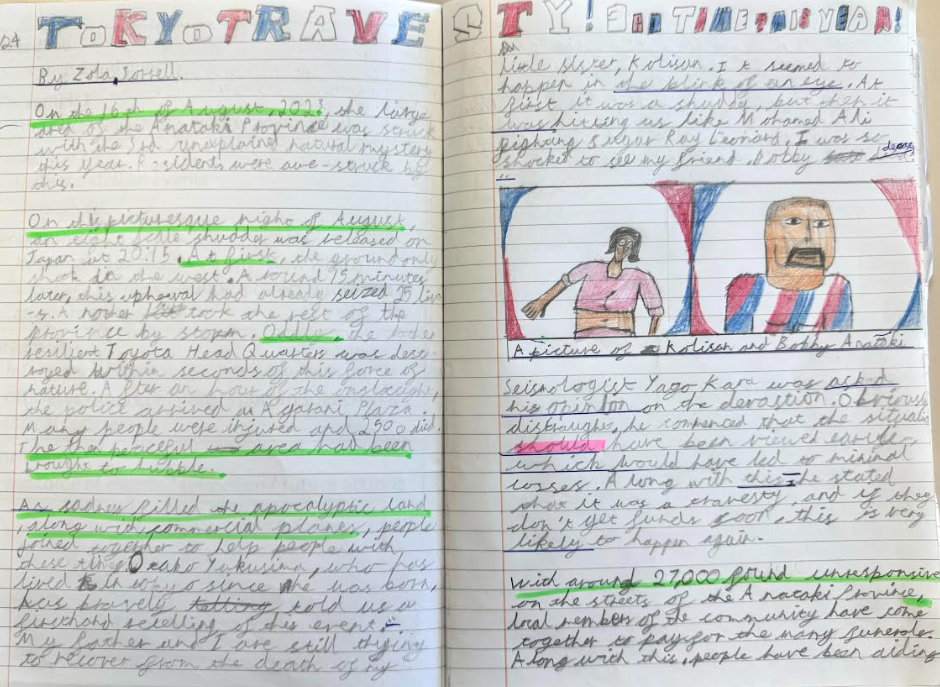 24
TOKYO TRAVESTY! 3RD TIME THIS YEAR!
By Zola Sorrell.
On the 16th of August, 202, the large
area of the Anataki Province was struck
with the 3rd unexplained natural mystery
this year. Residents were awe-struck by
this.
On the picturesque night of August,
an eight scale shuddy was released on
Japan at 20:15. At first, the ground only
shook in the west. Around 15 minutes
later, this upheval had already seized 25 live
-s. A nother took the rest of the
province by storm. Oddly, the
resilient Toyota Head Quarters was dest-
royed within seconds of this force of
nature. After an hour of the onslaught,
the police arrived in Agatani Plaza.
Many people were injured and 2500 died.
The then peaceful area had been
brought to rubble.
As sadness filled the apocalyptic land
, along with commercial planes, people
joined together to help people with
these Ocako Yukusina, who has
lived in since he was born,
has bravely telling told us a
firsthand retelling of this event.
My father and I are still trying
to recover from the death of my
little sister, Kolisan. It seemed to
happen in the blink of an eye. At
first it was a shuddy, but then it
was hitting us like Mohamed Ali
fighting Sugar Ray Leonard. I was so
shocked to see my friend, Bobby
A picture of Kolisan and Bobby Anataki
Seismologist Yago Kara was asked
his opinion on the devastion. Obviously
distraught, he commented that the situatio
should have been viewed earlier
which would have led to minimal
losses. Along with this, he stated
that it was a travesty and if they
don't get funds soon, this is very
likely to happen again.
With around 27,000 found unresponsive
on the streets of the Anataki Province,
local members of the community have come
together to pay for the many funerals.
Along with this, people have been aiding